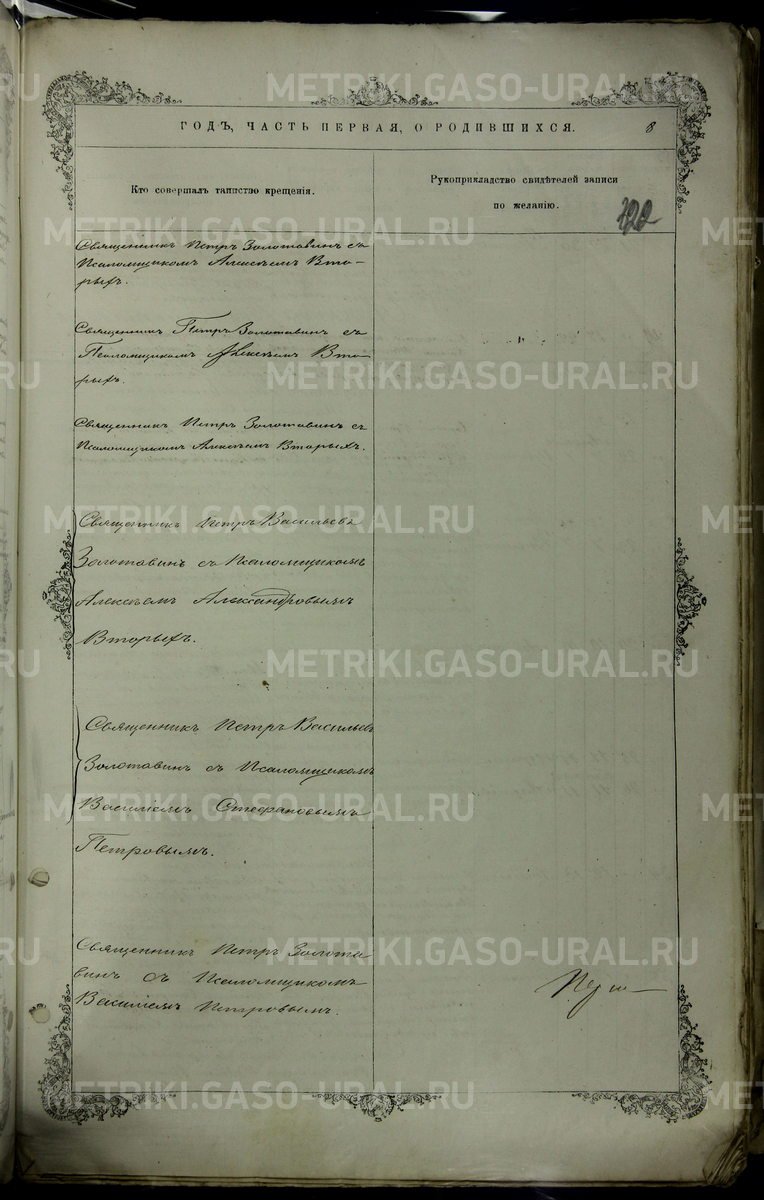 ГОДЪ, ЧАСТЬ ПЕРВАЯ, О РОДИВШИХСЯ. 8
Кто совершалъ таинство крещенія.
Рукоприкладство свидѣтелей записи
по желанію.
122
Священникъ Петръ Золотавинъ съ
Псаломщикомъ Алексѣемъ Вто-
рыхъ.
Священникъ Петръ Золотавинъ съ
Псаломщикомъ Алексѣемъ Вто-
рыхъ.
Священникъ Петръ Золотавинъ съ
Псаломщикомъ Алексѣемъ Вторыхъ.
Священникъ Петръ Васильевъ
Золотавинъ съ Псаломщикомъ
Алексѣемъ Александровымъ
Вторыхъ.
Священникъ Петръ Васильевъ
Золотавинъ съ Псаломщикомъ
Василіемъ Стефановымъ
Петровымъ.
Священникъ Петръ Золота
винъ съ Псаломщикомъ
Василіемъ Петровымъ.
METRIKI.GASO-URAL.RU